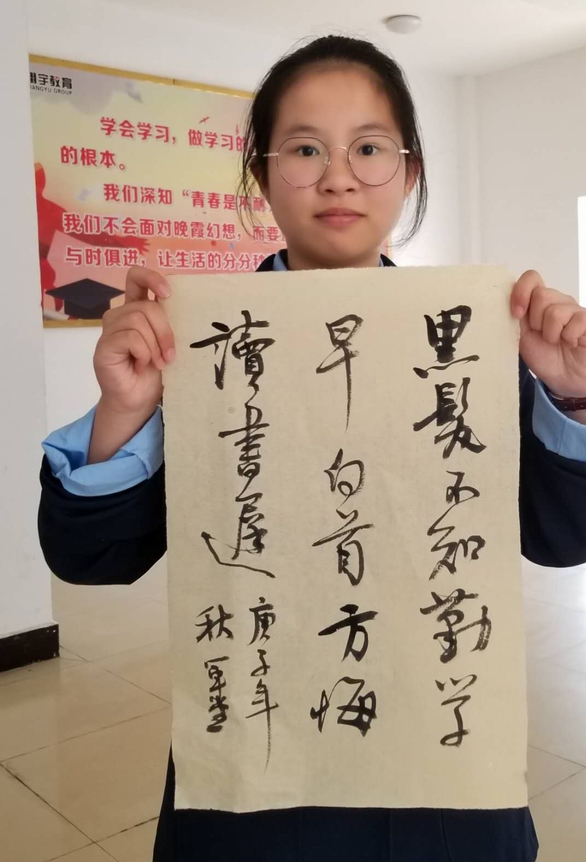 翔宇教育
IANGYU GROUP
学会学习，做学习的
的根本。
我们深知“青春是不耐
我们不会面对晚霞幻想，而要
与时俱进，让生活的分分秒
黑髮不知勤学
早白首方悔
讀書遲
庚子年
秋